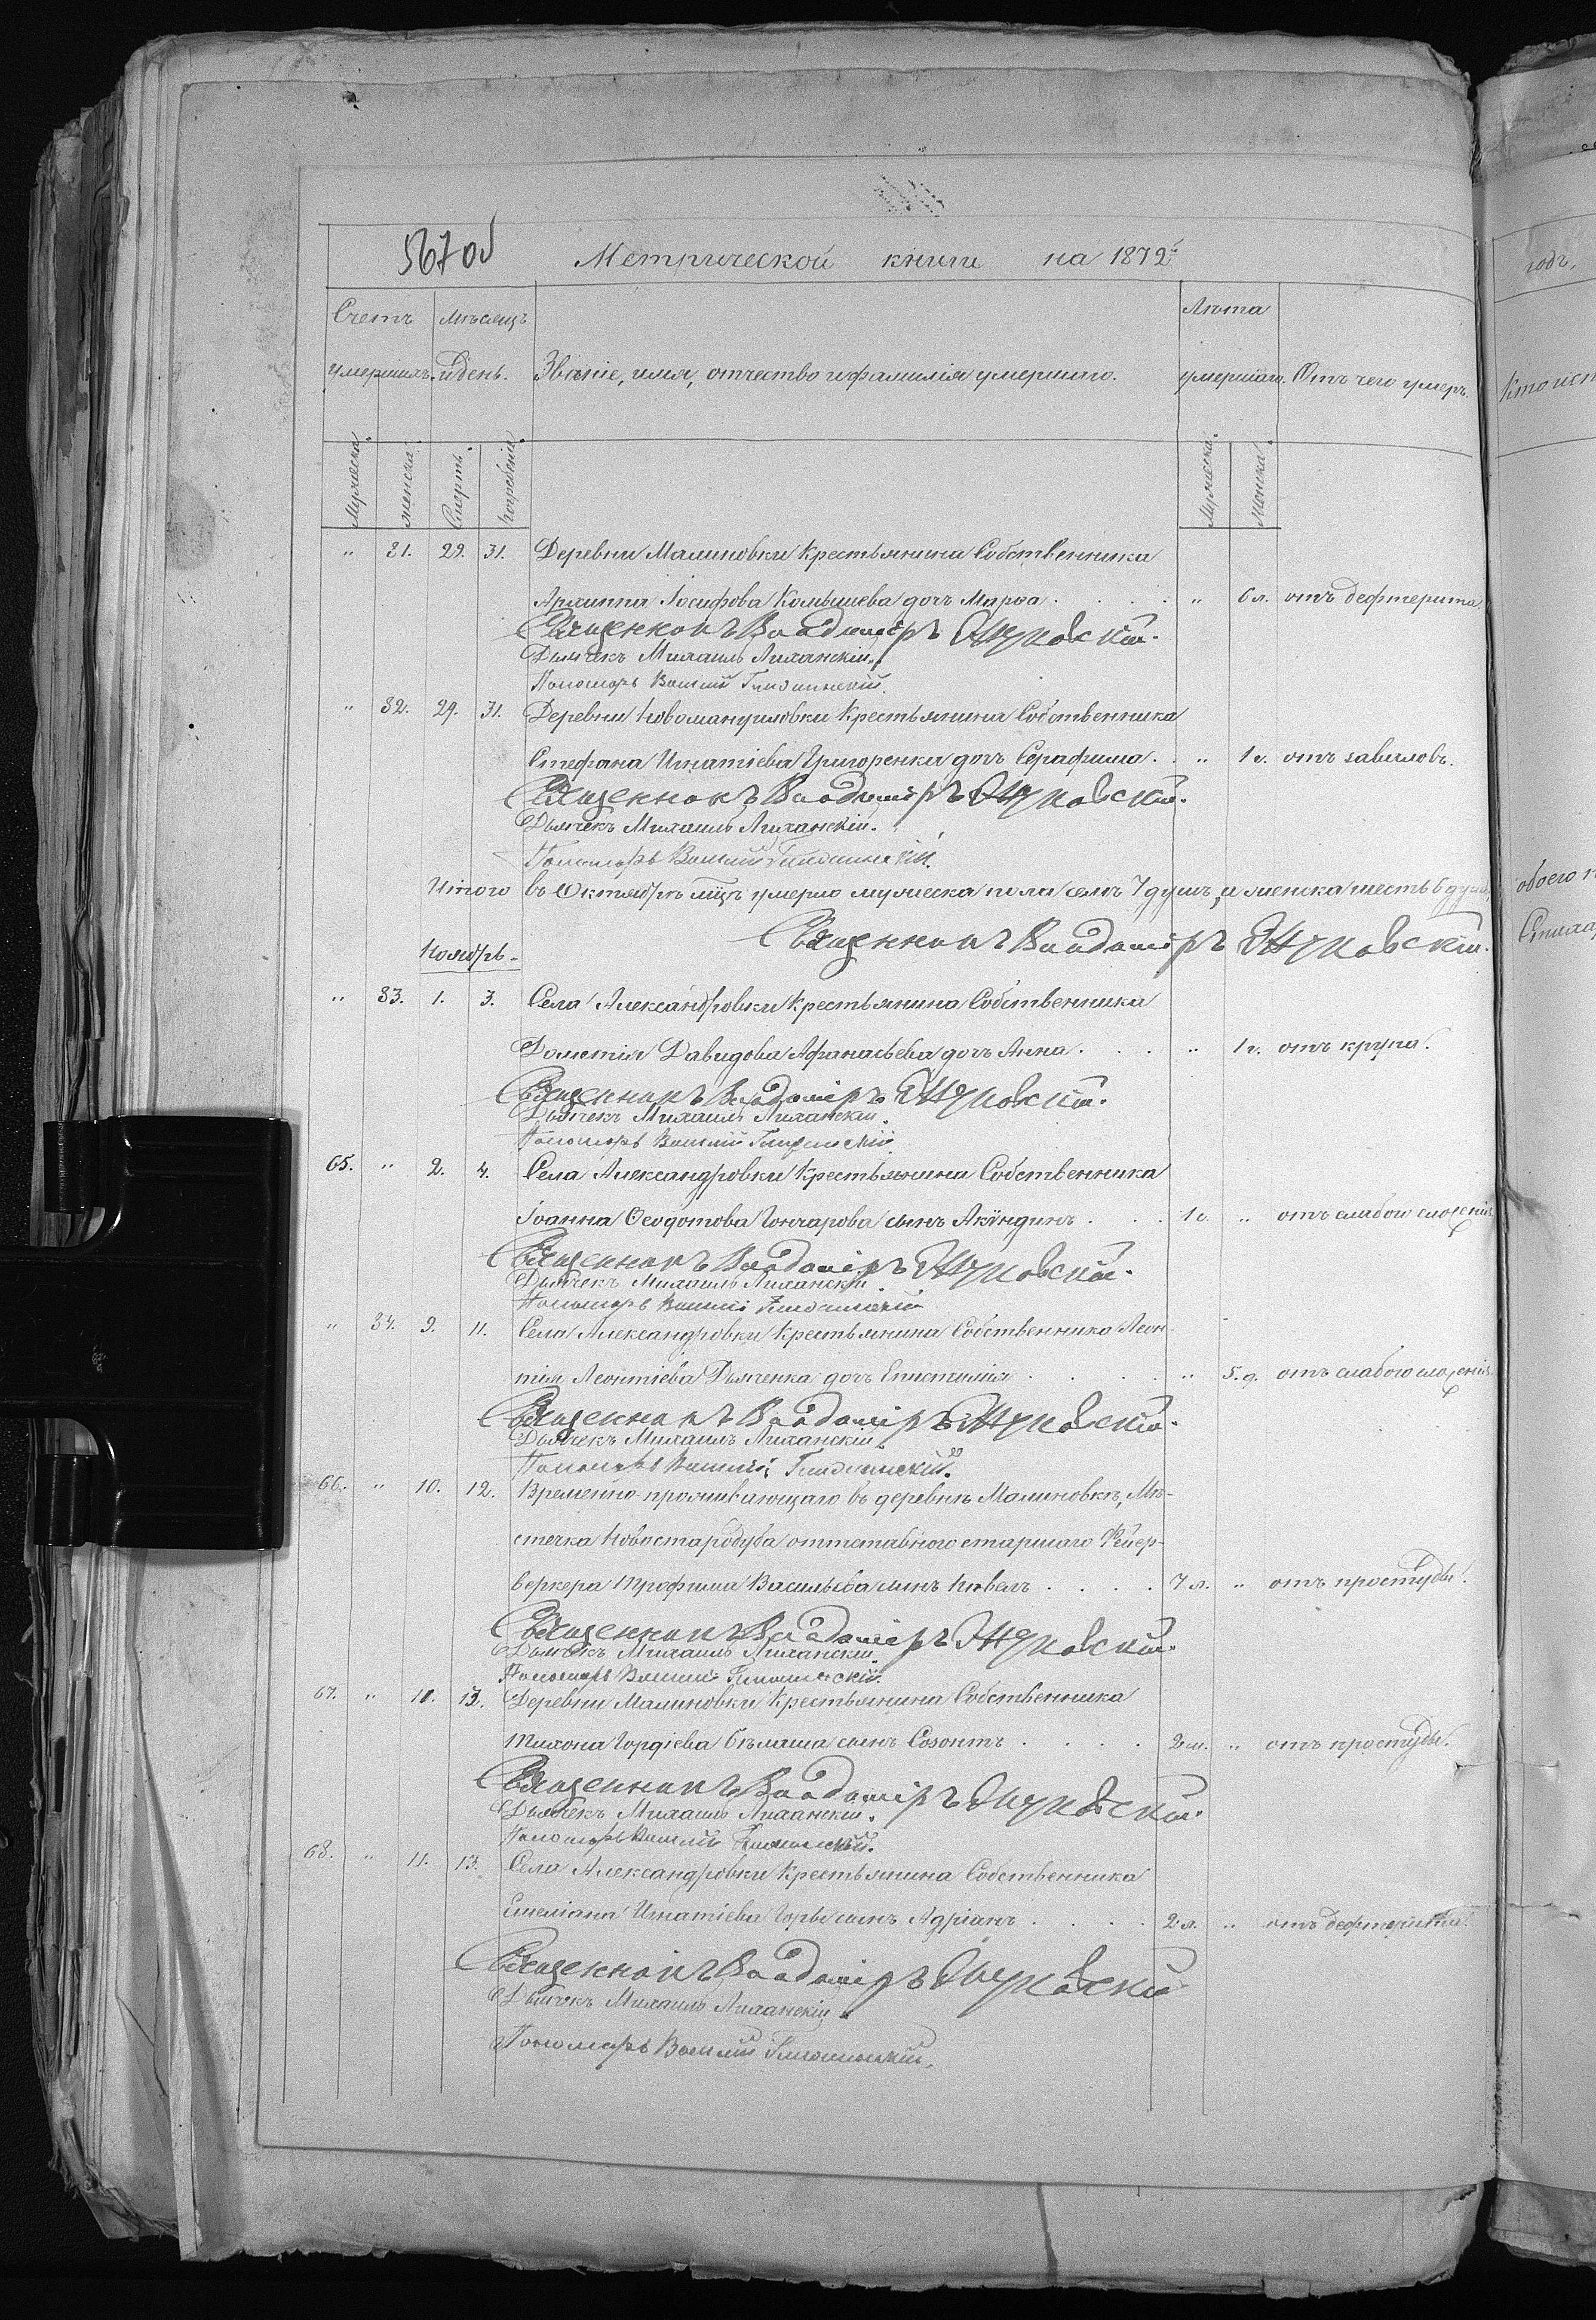 567об
Метрической книги на 1872й
Счетъ умершихъ. Мѣсяцъ и день. Званіе, имя, отчество и фамилія умершаго. Лѣта умершаго. Отъ чего умеръ.
Мужеска. женска. Смерть. погребенія. Мужеска. Женска.
" 31. 29. 31. Деревни Малиновки Крестьянина Собственника
Архиппа Іосифова Комышева дочь Марѳа . . . . " 6 л. отъ дефтерита.
Священникъ Владиміръ Жуковскій.
Дьячекъ Михаилъ Лиханскій.
Пономарь Василій
" 32. 29. 31. Деревни Новомануиловки Крестьянина Собственника
Стефана Игнатіева Григоренки дочь Серафима . . " 1 г. отъ заваловъ.
Священникъ Владиміръ Жуковскій.
Дьячекъ Михаилъ Лиханскій.
Пономарь Василій
Итого въ Октябрѣ мцѣ умерло мужеска пола семь 7 душъ, и женска шесть 6 душъ,
Священникъ Владиміръ Жуковскій.
Ноябрь.
" 33. 1. 3. Села Александровки Крестьянина Собственника
Дометія Давидова Афанасьева дочь Анна . . . " 1 г. отъ крупа.
Священникъ Владиміръ Жуковскій.
Дьячекъ Михаилъ Лиханскій.
Пономарь Василій
65. " 2. 4. Села Александровки Крестьянина Собственника
Іоанна Ѳеодотова Гончарова сынъ Акиндинъ . . . 1 г. " отъ слабого сложенія
Священникъ Владиміръ Жуковскій.
Дьячекъ Михаилъ Лиханскій.
Пономарь Василій
" 34. 9. 11. Села Александровки Крестьянина Собственника Леон-
тія Леонтіева Дьяченка дочь Епистимія . . . . " 5. д. отъ слабого сложенія
Священникъ Владиміръ Жуковскій.
Дьячекъ Михаилъ Лиханскій
Пономарь Василій
66. " 10. 12. Временно-проживающаго въ деревнѣ Малиновкѣ, Мѣ-
стечка Новостародуба оттставного старшаго Фейер-
веркера Трофима Васильева сынъ Павелъ . . . . 7 л. " отъ простуды.
Священникъ Владиміръ Жуковскій.
Дьячекъ Михаилъ Лиханскій.
Пономарь Василій
67. " 11. 13. Деревни Малиновки Крестьянина Собственника
Тихона Гордіева сынъ Созонтъ . . . . 2 м. " отъ простуды.
Священникъ Владиміръ Жуковскій.
Дьячекъ Михаилъ Лиханскій.
Пономарь Василій
68. " 11. 13. Села Александровки Крестьянина Собственника
Емеліана Игнатіева сынъ Адріанъ . . . . 2 л. " отъ дефтерита.
Священникъ Владиміръ Жуковскій
Дьячекъ Михаилъ Лиханскій.
Пономарь Василій